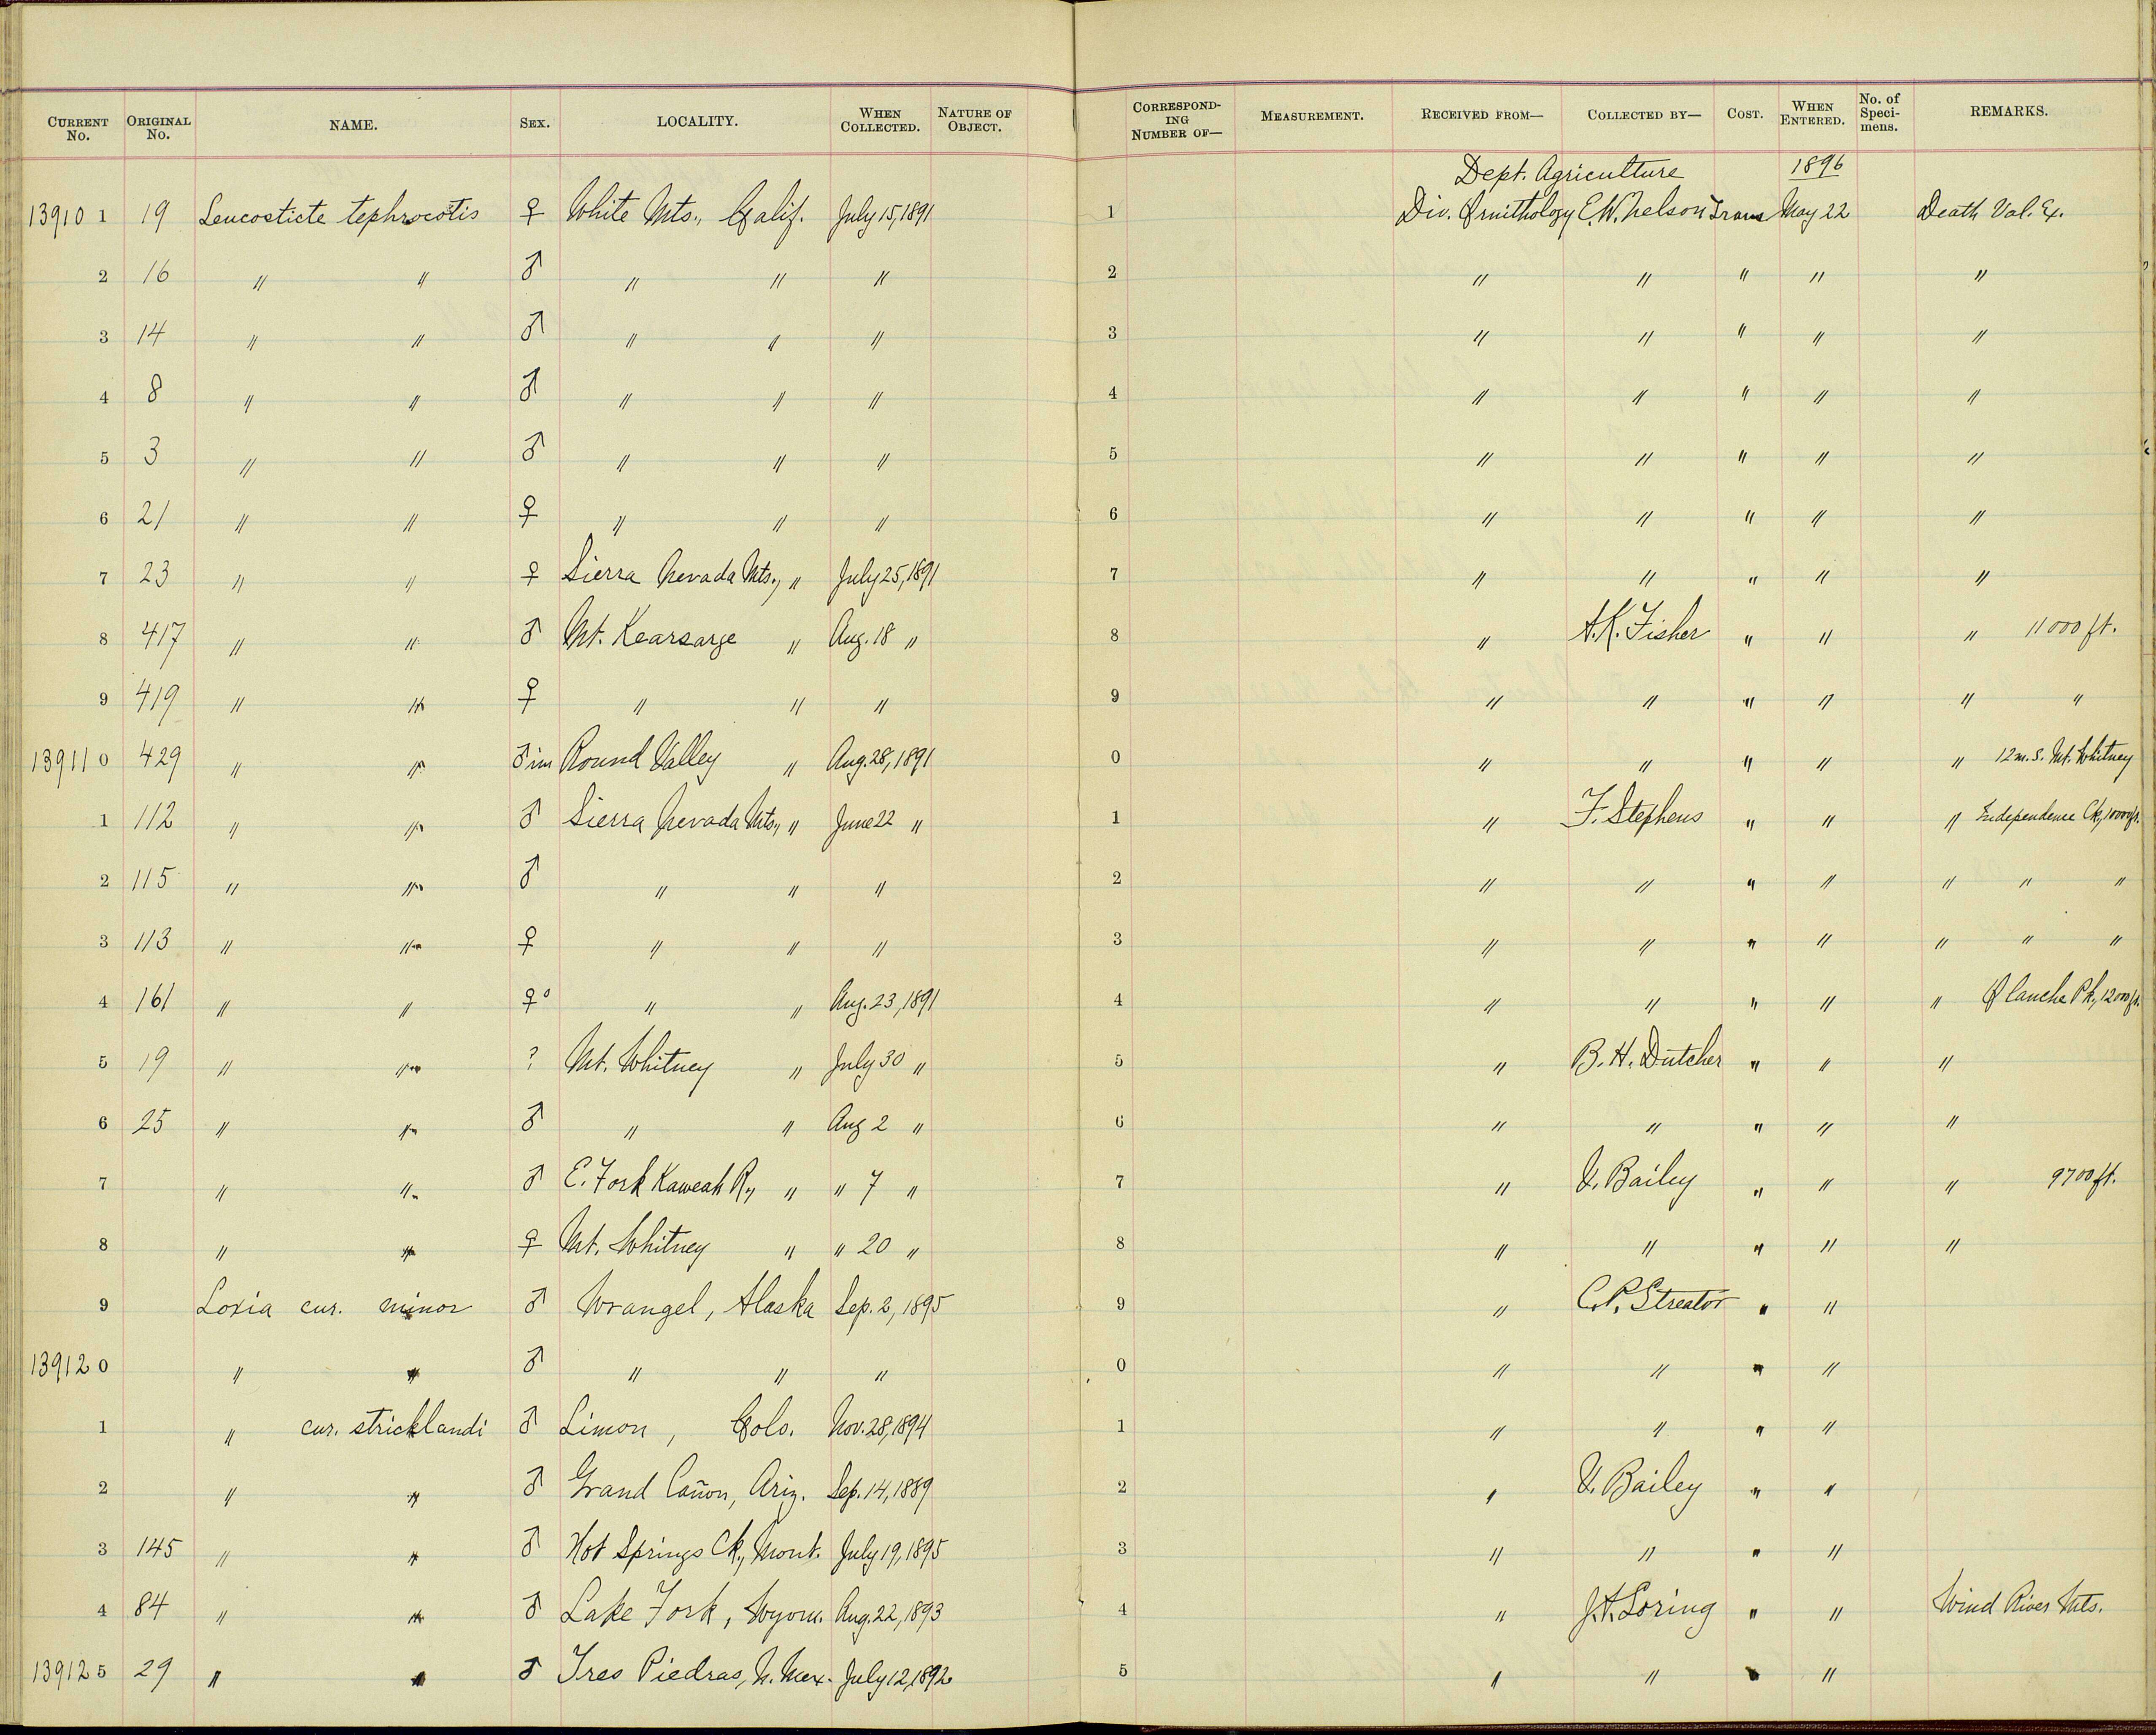 CURRENT No. ORIGINAL No. NAME. SEX. LOCALITY. WHEN COLLECTED. NATURE OF OBJECT. CORRESPONDING NUMBER OF— MEASUREMENT. RECEIVED FROM— COLLECTED BY— COST. WHEN ENTERED. No. of Specimens. REMARKS.
Dept. Agriculture 1896
13910 1 19 Leucosticte tephrocotis ♀ White Mts., Calif. July 15, 1891 1 Div. Ornithology E.W. Nelson Trans May 22 Death Val. Ex.
2 16 " " ♂ " " " 2 " " " " "
3 14 " " ♂ " " " 3 " " " " "
4 8 " " ♂ " " " 4 " " " " "
5 3 " " ♂ " " " 5 " " " " "
6 21 " " ♀ " " " 6 " " " " "
7 23 " " ♀ Sierra Nevada Mts., " July 25, 1891 7 " " " " "
8 417 " " ♂ Mt. Kearsarge " Aug. 18 " 8 " A.K. Fisher " " " 11000 ft.
9 419 " " ♀ " " " 9 " " " " " "
13911 0 429 " " ♂ im Round Valley " Aug. 28, 1891 0 " " " " " 12 m. S. Mt. Whitney
1 112 " " ♂ Sierra Nevada Mts., " June 22 " 1 " F. Stephens " " " Independence Ck, 10000 ft.
2 115 " " ♂ " " " 2 " " " " " " "
3 113 " " ♀ " " " 3 " " " " " " "
4 161 " " ♀ o " " Aug. 23, 1891 4 " " " " " Olancha Pk., 12000 ft.
5 19 " " ? Mt. Whitney " July 30 " 5 " B.H. Dutcher " " "
6 25 " " ♂ " " Aug 2 " 6 " " " " "
7 " " ♂ E. Fork Kaweah R., " " 7 " 7 " V. Bailey " " " 9700 ft.
8 " " ♀ Mt. Whitney " " 20 " 8 " " " " "
9 Loxia cur. minor ♂ Wrangel, Alaska Sep. 2, 1895 9 " C.P. Streator " "
13912 0 " " ♂ " " " 0 " " " "
1 " cur. stricklandi ♂ Limon, Colo. Nov. 28, 1894 1 " " " "
2 " " ♂ Grand Cañon, Ariz. Sep. 14, 1889 2 " V. Bailey " "
3 145 " " ♂ Hot Springs Ck., Mont. July 19, 1895 3 " " " "
4 84 " " ♂ Lake Fork, Wyom. Aug. 22, 1893 4 " J.A. Loring " " Wind River Mts.
13912 5 29 " " ♂ Tres Piedras, N. Mex. July 12, 1892 5 " " " "